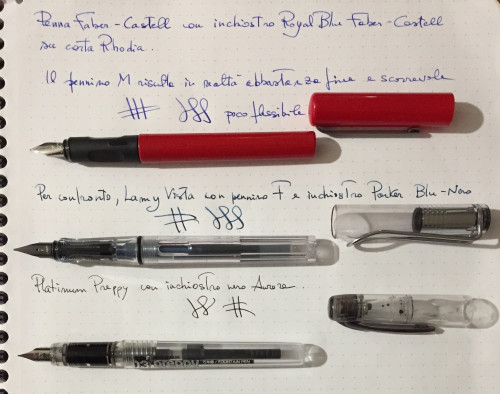 Penna Faber-Castell con inchiostro Royal Blue Faber-Castell
su carta Rhodia.
Il pennino M risulta in realtà abbastanza fine e scorrevole
poco flessibile
Per confronto, Lamy Vista con pennino F e inchiostro Parker Blu-Nero
Platinum Preppy con inchiostro nero Aurora.
preppy